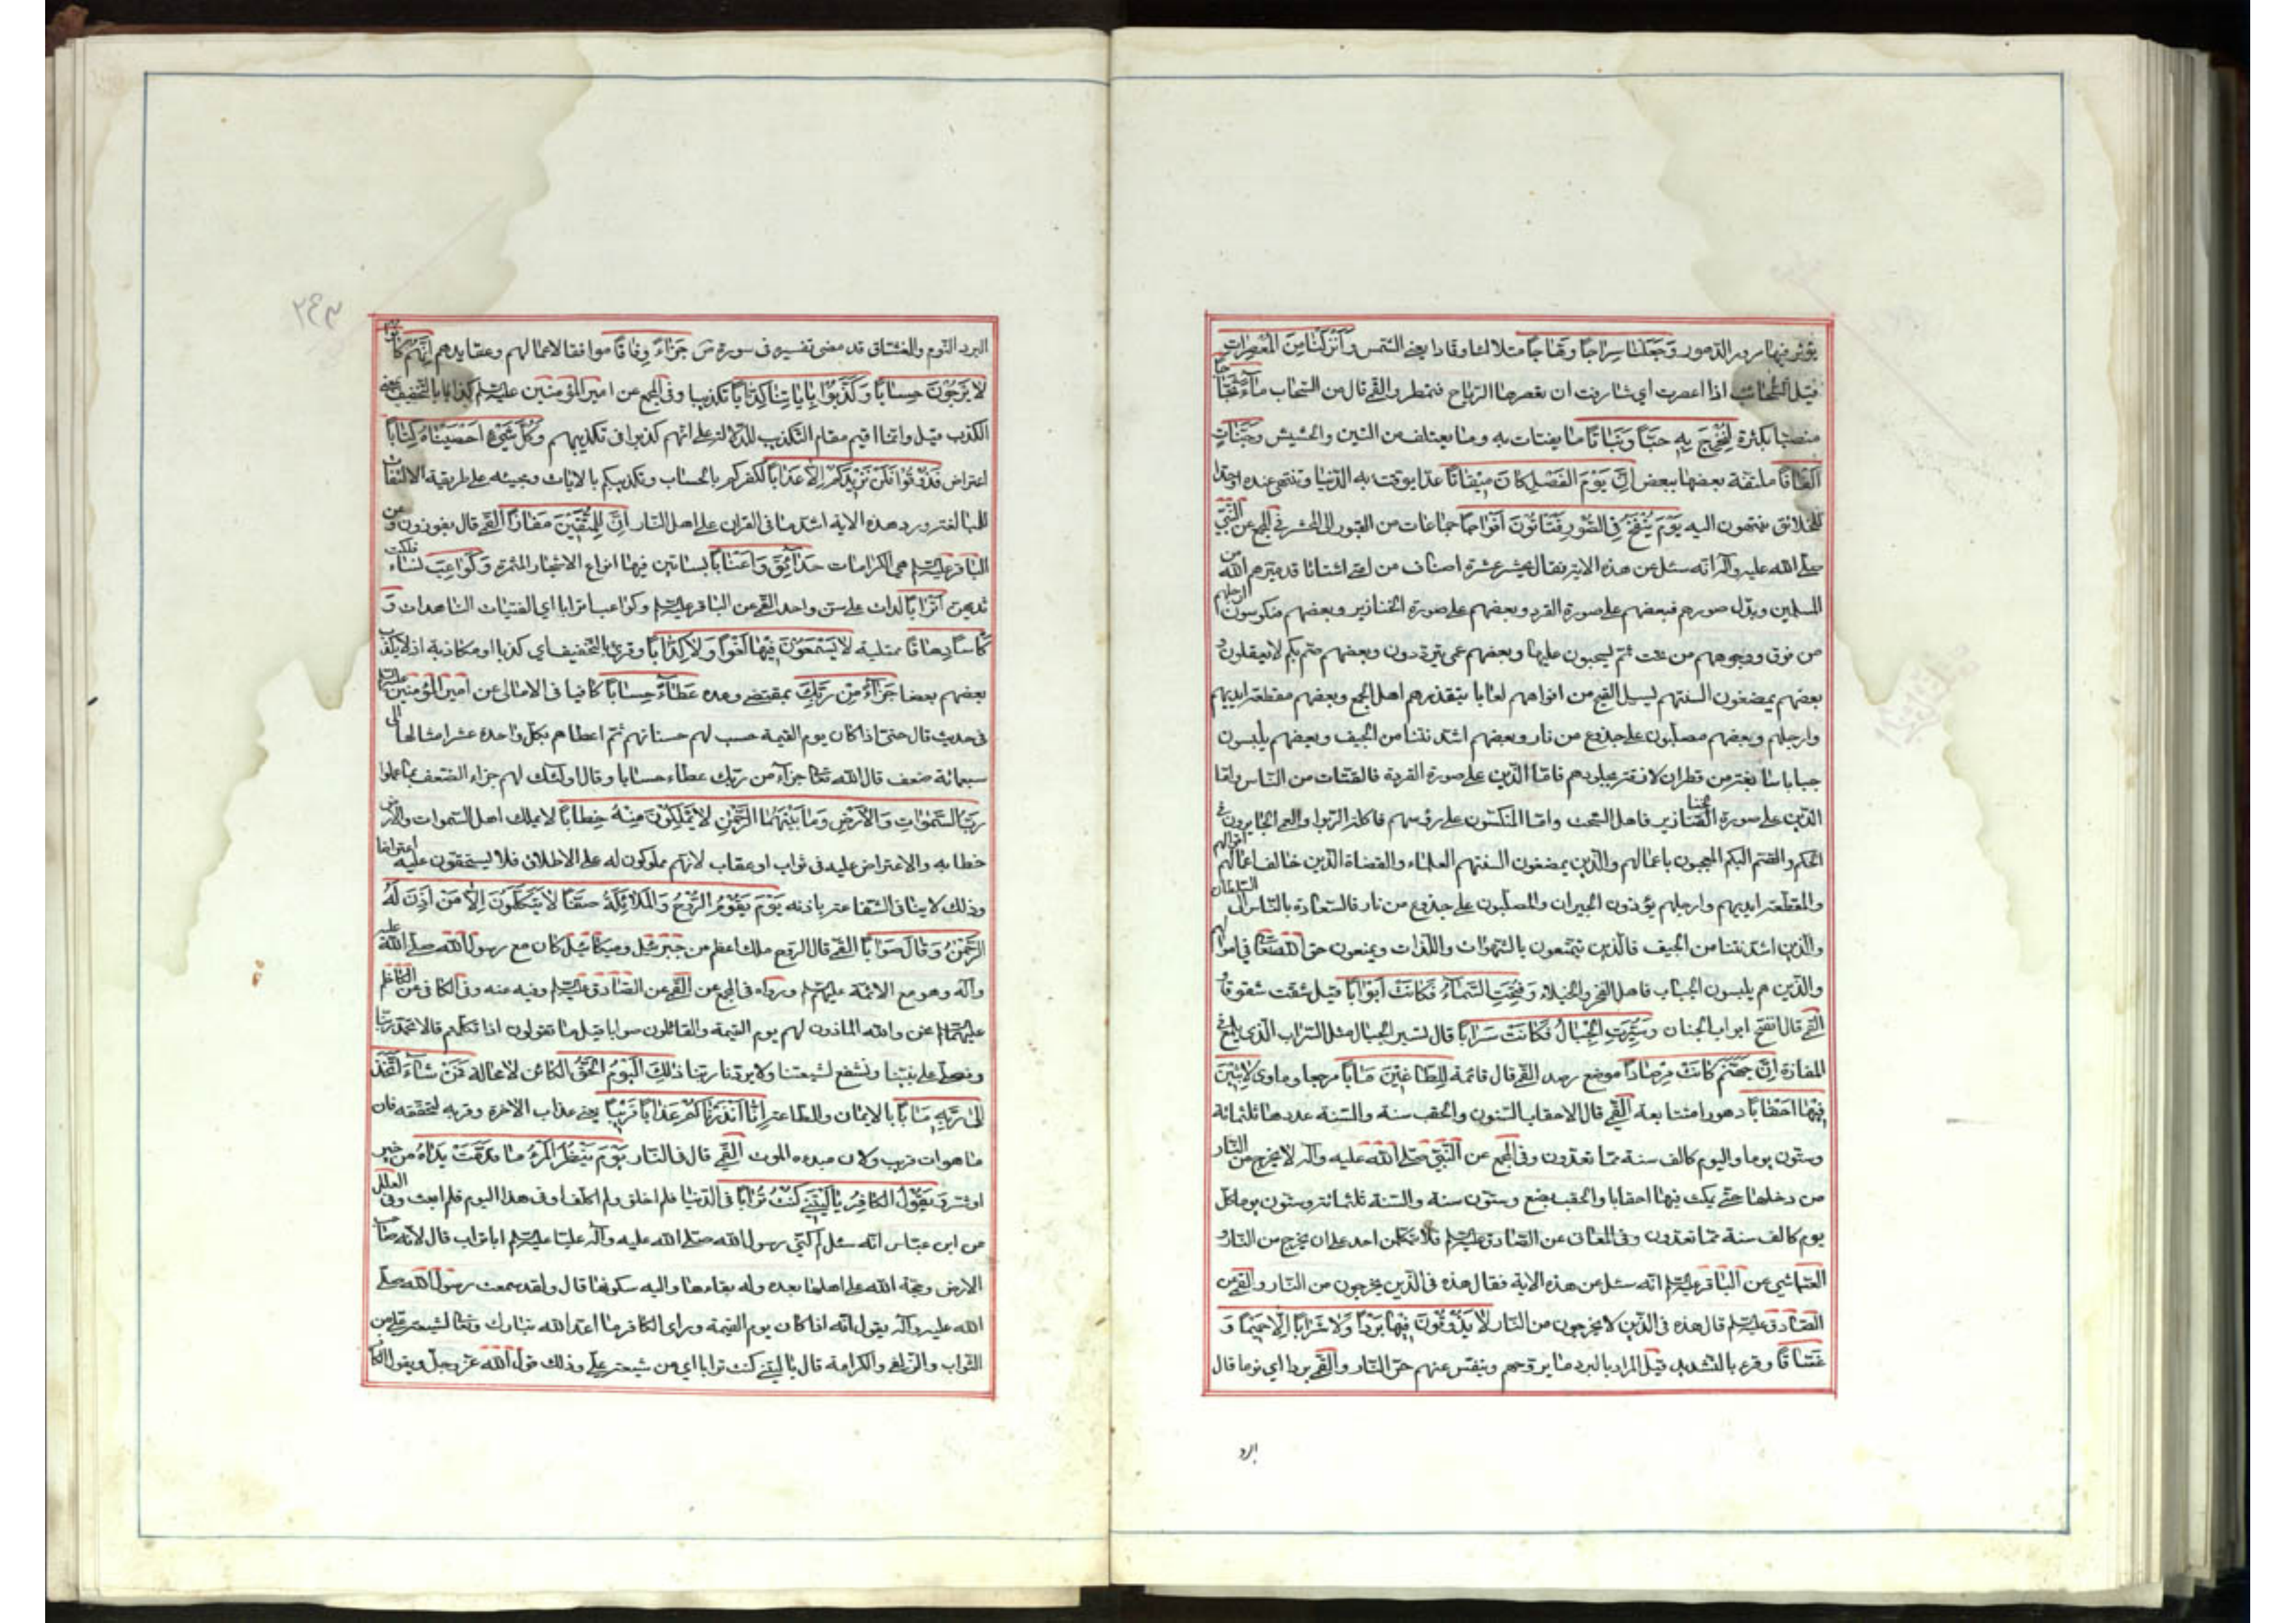 يؤثر فيها مرور الدهور وَجَعَلْنَا سِرَاجًا وَهَّاجًا متلألئا وقادا يعني الشمس وَأَنْزَلْنَا مِنَ الْمُعْصِرَاتِ
قيل السحائب اذا اعصرت اي شارفت ان تعصرها الرياح فتمطر والقمي قال من السحاب مَاءً ثَجَّاجًا
منصبا بكثرة لِنُخْرِجَ بِهِ حَبًّا وَنَبَاتًا ما يقتات به وما يعتلف من التبن والحشيش وَجَنَّاتٍ
أَلْفَافًا ملتفة بعضها ببعض إِنَّ يَوْمَ الْفَصْلِ كَانَ مِيقَاتًا حدا يوقت به الدنيا وتنتهي عنده او حدا
للخلائق ينتهون اليه يَوْمَ يُنْفَخُ فِي الصُّورِ فَتَأْتُونَ أَفْوَاجًا جماعات من القبور الى المحشر في المجمع عن النبي
صلى الله عليه وآله انه سئل عن هذه الاية فقال يحشر عشرة اصناف من امتي اشتاتا قد ميزهم الله من
المسلمين وبدل صورهم فبعضهم على صورة القرد وبعضهم على صورة الخنازير وبعضهم منكوسون ارجلهم
من فوق ووجوههم من تحت ثم يسحبون عليها وبعضهم عمي يترددون وبعضهم صم بكم لا يعقلون و
بعضهم يمضغون السنتهم يسيل القيح من افواههم لعابا يتقذرهم اهل الجمع وبعضهم مقطعة ايديهم
وارجلهم وبعضهم مصلبون على جذوع من نار وبعضهم اشد نتنا من الجيف وبعضهم يلبسون
جبابا سابغة من قطران لازقة بجلودهم فاما الذين على صورة القردة فالقتات من الناس واما
الذين على صورة الخنازير فاهل السحت واما المنكسون على رؤسهم فاكلة الربوا والعمي الجايرون في
الحكم والصم البكم المعجبون باعمالهم والذين يمضغون السنتهم العلماء والقضاة الذين خالف اعمالهم اقوالهم
والمقطعة ايديهم وارجلهم يؤذون الجيران والمصلبون على جذوع من نار فالسعادة بالناس الى السلطان
والذين اشد نتنا من الجيف فالذين يتمتعون بالشهوات واللذات ويمنعون حق الله تعالى في اموالهم
والذين هم يلبسون الجباب فاهل الفخر والخيلاء وَفُتِحَتِ السَّمَاءُ فَكَانَتْ أَبْوَابًا قيل شقت شقوقا و
القمي قال انفتح ابواب الجنان وَسُيِّرَتِ الْجِبَالُ فَكَانَتْ سَرَابًا قال تسير الجبال مثل السراب الذي يلمع في
المفازة إِنَّ جَهَنَّمَ كَانَتْ مِرْصَادًا موضع رصد القمي قال قائمة لِلطَّاغِينَ مَآبًا مرجعا وماوى لَابِثِينَ
فِيهَا أَحْقَابًا دهورا متتابعة القمي قال الاحقاب السنون والحقب سنة والسنة عددها ثلثمائة
وستون يوما واليوم كالف سنة مما تعدون وفي المجمع عن النبي صلى الله عليه وآله لا يخرج من النار
من دخلها حتى يمكث فيها احقابا والحقب بضع وستون سنة والسنة ثلثمائة وستون يوما كل
يوم كالف سنة مما تعدون وفي المعاني عن الصادق عليه السلام فلا يتكلن احد على ان يخرج من النار و
العياشي عن الباقر عليه السلام انه سئل عن هذه الاية فقال هذه في الذين يخرجون من النار والقمي عن
الصادق عليه السلام قال هذه في الذين لا يخرجون من النار لَا يَذُوقُونَ فِيهَا بَرْدًا وَلَا شَرَابًا إِلَّا حَمِيمًا وَ
غَسَّاقًا وقرء بالتشديد قيل المراد بالبرد ما يروحهم وينفس عنهم حر النار والقمي بردا اي نوما قال
البرد
٢٤٣
البرد النوم والغساق قد مضى تفسيره في سورة ص جَزَاءً وِفَاقًا موافقا لاعمالهم وعقايدهم إِنَّهُمْ كَانُوا
لَا يَرْجُونَ حِسَابًا وَكَذَّبُوا بِآيَاتِنَا كِذَّابًا تكذيبا وفي المجمع عن امير المؤمنين عليه السلام كذابا بالتخفيف بمعنى
الكذب قيل وانما اقيم مقام التكذيب للدلالة على انهم كذبوا في تكذيبهم وَكُلَّ شَيْءٍ أَحْصَيْنَاهُ كِتَابًا
اعتراض فَذُوقُوا فَلَنْ نَزِيدَكُمْ إِلَّا عَذَابًا لكفركم بالحساب وتكذيبكم بالايات ومجيئه على طريقة الالتفات
للمبالغة وورد هذه الاية اشد ما في القران على اهل النار إِنَّ لِلْمُتَّقِينَ مَفَازًا القمي قال يفوزون وعن
الباقر عليه السلام هي الكرامات حَدَائِقَ وَأَعْنَابًا بساتين فيها انواع الاشجار المثمرة وَكَوَاعِبَ نساء فلكت
ثديهن أَتْرَابًا لدات على سن واحد القمي عن الباقر عليه السلام وكواعب اترابا اي الفتيات الناهدات وَ
كَأْسًا دِهَاقًا ممتلية لَا يَسْمَعُونَ فِيهَا لَغْوًا وَلَا كِذَّابًا وقرئ بالتخفيف اي كذبا او مكاذبة اذ لا يكذب
بعضهم بعضا جَزَاءً مِنْ رَبِّكَ بمقتضى وعده عَطَاءً حِسَابًا كافيا في الامالي عن امير المؤمنين عليه السلام
في حديث قال حتى اذا كان يوم القيمة حسب لهم حسناتهم ثم اعطاهم بكل واحدة عشر امثالها الى
سبعمائة ضعف قال الله تعالى جزاء من ربك عطاء حسابا وقال اولئك لهم جزاء الضعف بما عملوا
رَبِّ السَّمَوَاتِ وَالْأَرْضِ وَمَا بَيْنَهُمَا الرَّحْمَنِ لَا يَمْلِكُونَ مِنْهُ خِطَابًا لا يملك اهل السموات والارض
خطابه والاعتراض عليه في ثواب او عقاب لانهم مملوكون له على الاطلاق فلا يستحقون عليه اعتراضا
وذلك لا ينافي الشفاعة باذنه يَوْمَ يَقُومُ الرُّوحُ وَالْمَلَائِكَةُ صَفًّا لَا يَتَكَلَّمُونَ إِلَّا مَنْ أَذِنَ لَهُ
الرَّحْمَنُ وَقَالَ صَوَابًا القمي قال الروح ملك اعظم من جبرئيل وميكائيل كان مع رسول الله صلى الله عليه
وآله وهو مع الائمة عليهم السلام ورواه في المجمع عن القمي عن الصادق عليه السلام وفيه منه وفي الكافي عن الكاظم
عليهما السلام نحن والله الماذون لهم يوم القيمة والقائلون صوابا قيل ما تقولون اذا تكلمتم قالا نحمد ربنا
ونصلي على نبينا ونشفع لشيعتنا ولا يردنا ربنا ذَلِكَ الْيَوْمُ الْحَقُّ الكائن لا محالة فَمَنْ شَاءَ اتَّخَذَ
إِلَى رَبِّهِ مَآبًا بالايمان والطاعة إِنَّا أَنْذَرْنَاكُمْ عَذَابًا قَرِيبًا يعني عذاب الاخرة وقربه لتحققه فان
ما هو ات قريب ولان مبدءه الموت القمي قال في النار يَوْمَ يَنْظُرُ الْمَرْءُ مَا قَدَّمَتْ يَدَاهُ من خير
او شر وَيَقُولُ الْكَافِرُ يَا لَيْتَنِي كُنْتُ تُرَابًا في الدنيا فلم اخلق ولم اكلف او في هذا اليوم فلم ابعث وفي العلل
عن ابن عباس انه سئل لم كنى رسول الله صلى الله عليه وآله عليا عليه السلام ابا تراب قال لانه صاحب
الارض وحجة الله على اهلها بعده وله بقاءها واليه سكونها قال ولقد سمعت رسول الله صلى
الله عليه وآله يقول انه اذا كان يوم القيمة وراى الكافر ما اعد الله تبارك وتعالى لشيعة علي من
الثواب والزلفى والكرامة قال يا ليتني كنت ترابا اي من شيعة علي وذلك قول الله عز وجل ويقول الكا